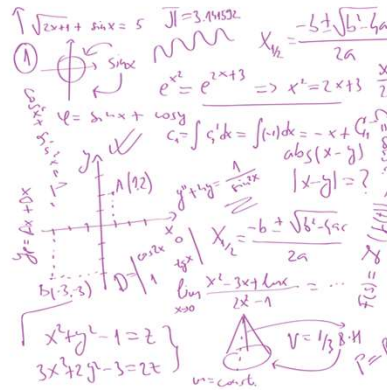 √2x+1 + sinx = 5
π = 3.141592
X₁/₂ = -b ± √b²-4ac / 2a
① sinx
e^x² = e^2x+3 => x² = 2x+3
φ = sinx + cosy
C₁ = ∫ C₁'dx = ∫(-1)dx = -x + C₁
abs(x-y)
y
A(1,2)
y" + 4y = 1 / sin2x
|x-y| = ?
x
0
X₁/₂ = -b ± √b²-4ac / 2a
cos2x
tgx
D =
1
B(-3,-3)
lim x→0 x²-3x+lnx / 2x-1 = ...
x²+y²-1=z
3x²+2y²-3=2z
V = 1/3 B·H
v = const.